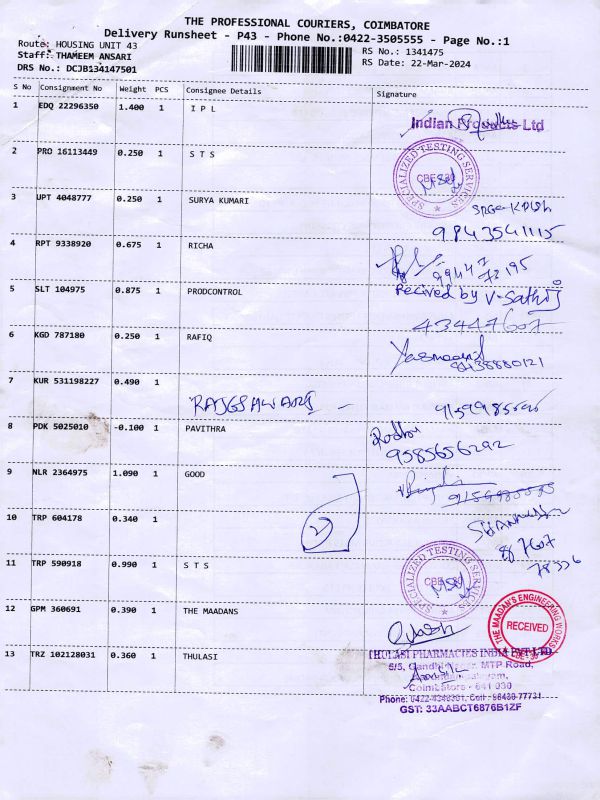 THE PROFESSIONAL COURIERS, COIMBATORE
Delivery Runsheet - P43 - Phone No.:0422-3505555 - Page No.:1
Route: HOUSING UNIT 43
Staff: THAMEEM ANSARI
DRS No.: DCJB134147501
RS No.: 1341475
RS Date: 22-Mar-2024
S No Consignment No Weight PCS Consignee Details Signature
1 EDQ 22296350 1.400 1 I P L
Indian Ltd
2 PRO 16113449 0.250 1 S T S
SPECIALIZED TESTING SERVICES
3 UPT 4048777 0.250 1 SURYA KUMARI
9843541115
4 RPT 9338920 0.675 1 RICHA
99447
72195
5 SLT 104975 0.875 1 PRODCONTROL
Recived by V-Sathij
43447607
6 KGD 787180 0.250 1 RAFIQ
8438880121
7 KUR 531198227 0.490 1
8 PDK 5025010 -0.100 1 PAVITHRA
9585656292
9 NLR 2364975 1.090 1 GOOD
10 TRP 604178 0.340 1
2
11 TRP 590918 0.990 1 S T S
SPECIALIZED TESTING SERVICES
12 GPM 360691 0.390 1 THE MAADANS
THE MAADAN'S ENGINEERING WORKS
RECEIVED
13 TRZ 102128031 0.360 1 THULASI
THULASI PHARMACIES INDIA PVT LTD
5/5, Gandhi MTP Road,
Coimbatore - 641 030
Phone: Cell: 98430-77731
GST: 33AABCT6876B1ZF